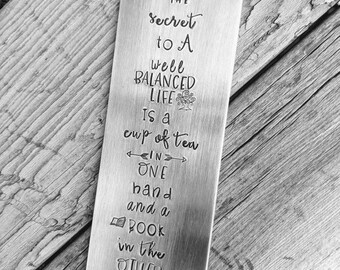 The
secret
to A
well
BALANCED
LIFE
IS A
cup of tea
IN
ONE
hand
and a
BOOK
in the
OTHER